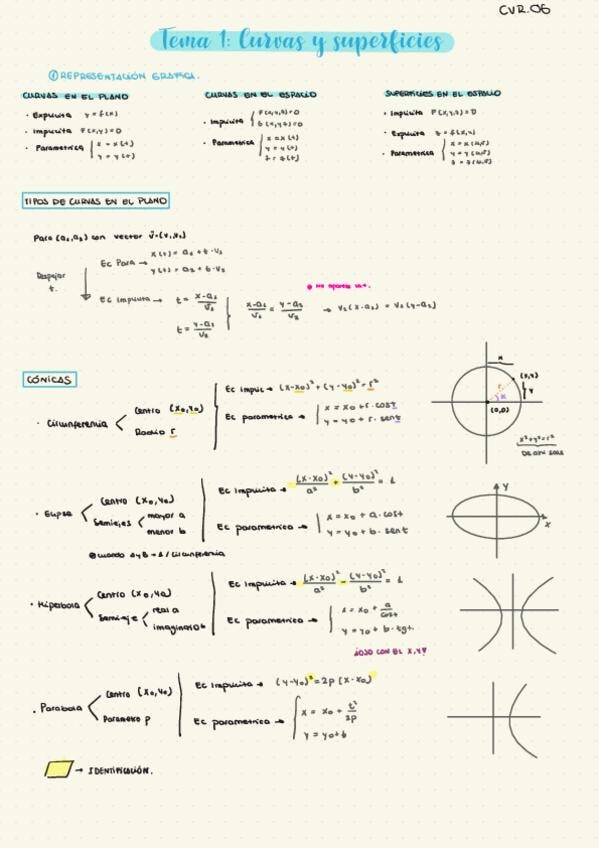 CVR.06
Tema 1: Curvas y superficies
① REPRESENTACIÓN GRAFICA.
CURVAS EN EL PLANO
· Explicita y = f(x)
· Implicita F(x,y)=0
· Parametrica { x = x(t)
y = y(t)
CURVAS EN EL ESPACIO
· Implicita { F(x,y,z)=0
G(x,y,z)=0
· Parametrica { x = x(t)
y = y(t)
z = z(t)
SUPERFICIES EN EL ESPACIO
· Implicita F(x,y,z)=0
· Explicita z = f(x,y)
· Parametrica
TIPOS DE CURVAS EN EL PLANO
Para (a₁,a₂) con vector v=(v₁,v₂)
Ec Para → x(t) = a₁ + t·v₁
y(t) = a₂ + t·v₂
Despejar
t.
Ec Implicita → t = x-a₁/v₁
t = y-a₂/v₂
x-a₁/v₁ = y-a₂/v₂ → v₂(x-a₁) = v₁(y-a₂)
CÓNICAS
· Circunferencia
Centro (x₀,y₀)
Radio r
Ec implic → (x-x₀)² + (y-y₀)² = r²
Ec parametrica → x = x₀ + r·cost
y = y₀ + r·sent
x
(x,y)
r
y
(0,0)
x²+y²=r²
De ahí sale
· Elipse
Centro (x₀,y₀)
Semiejes
mayor a
menor b
Ec Implicita → (x-x₀)²/a² + (y-y₀)²/b² = 1
Ec parametrica → x = x₀ + a·cost
y = y₀ + b·sent
cuando a y b = 1 / circunferencia
y
x
· Hiperbola
Centro (x₀,y₀)
Semieje
real a
imaginario b
Ec Implicita → (x-x₀)²/a² - (y-y₀)²/b² = 1
Ec parametrica → x = x₀ + a/cost
y = y₀ + b·tgt.
¡OJO CON EL X,Y!
· Parabola
Centro (x₀,y₀)
Parametro p
Ec Implicita → (y-y₀)² = 2p (x-x₀)
Ec parametrica → x = x₀ + t²/2p
y = y₀+t
→ IDENTIFICACIÓN.